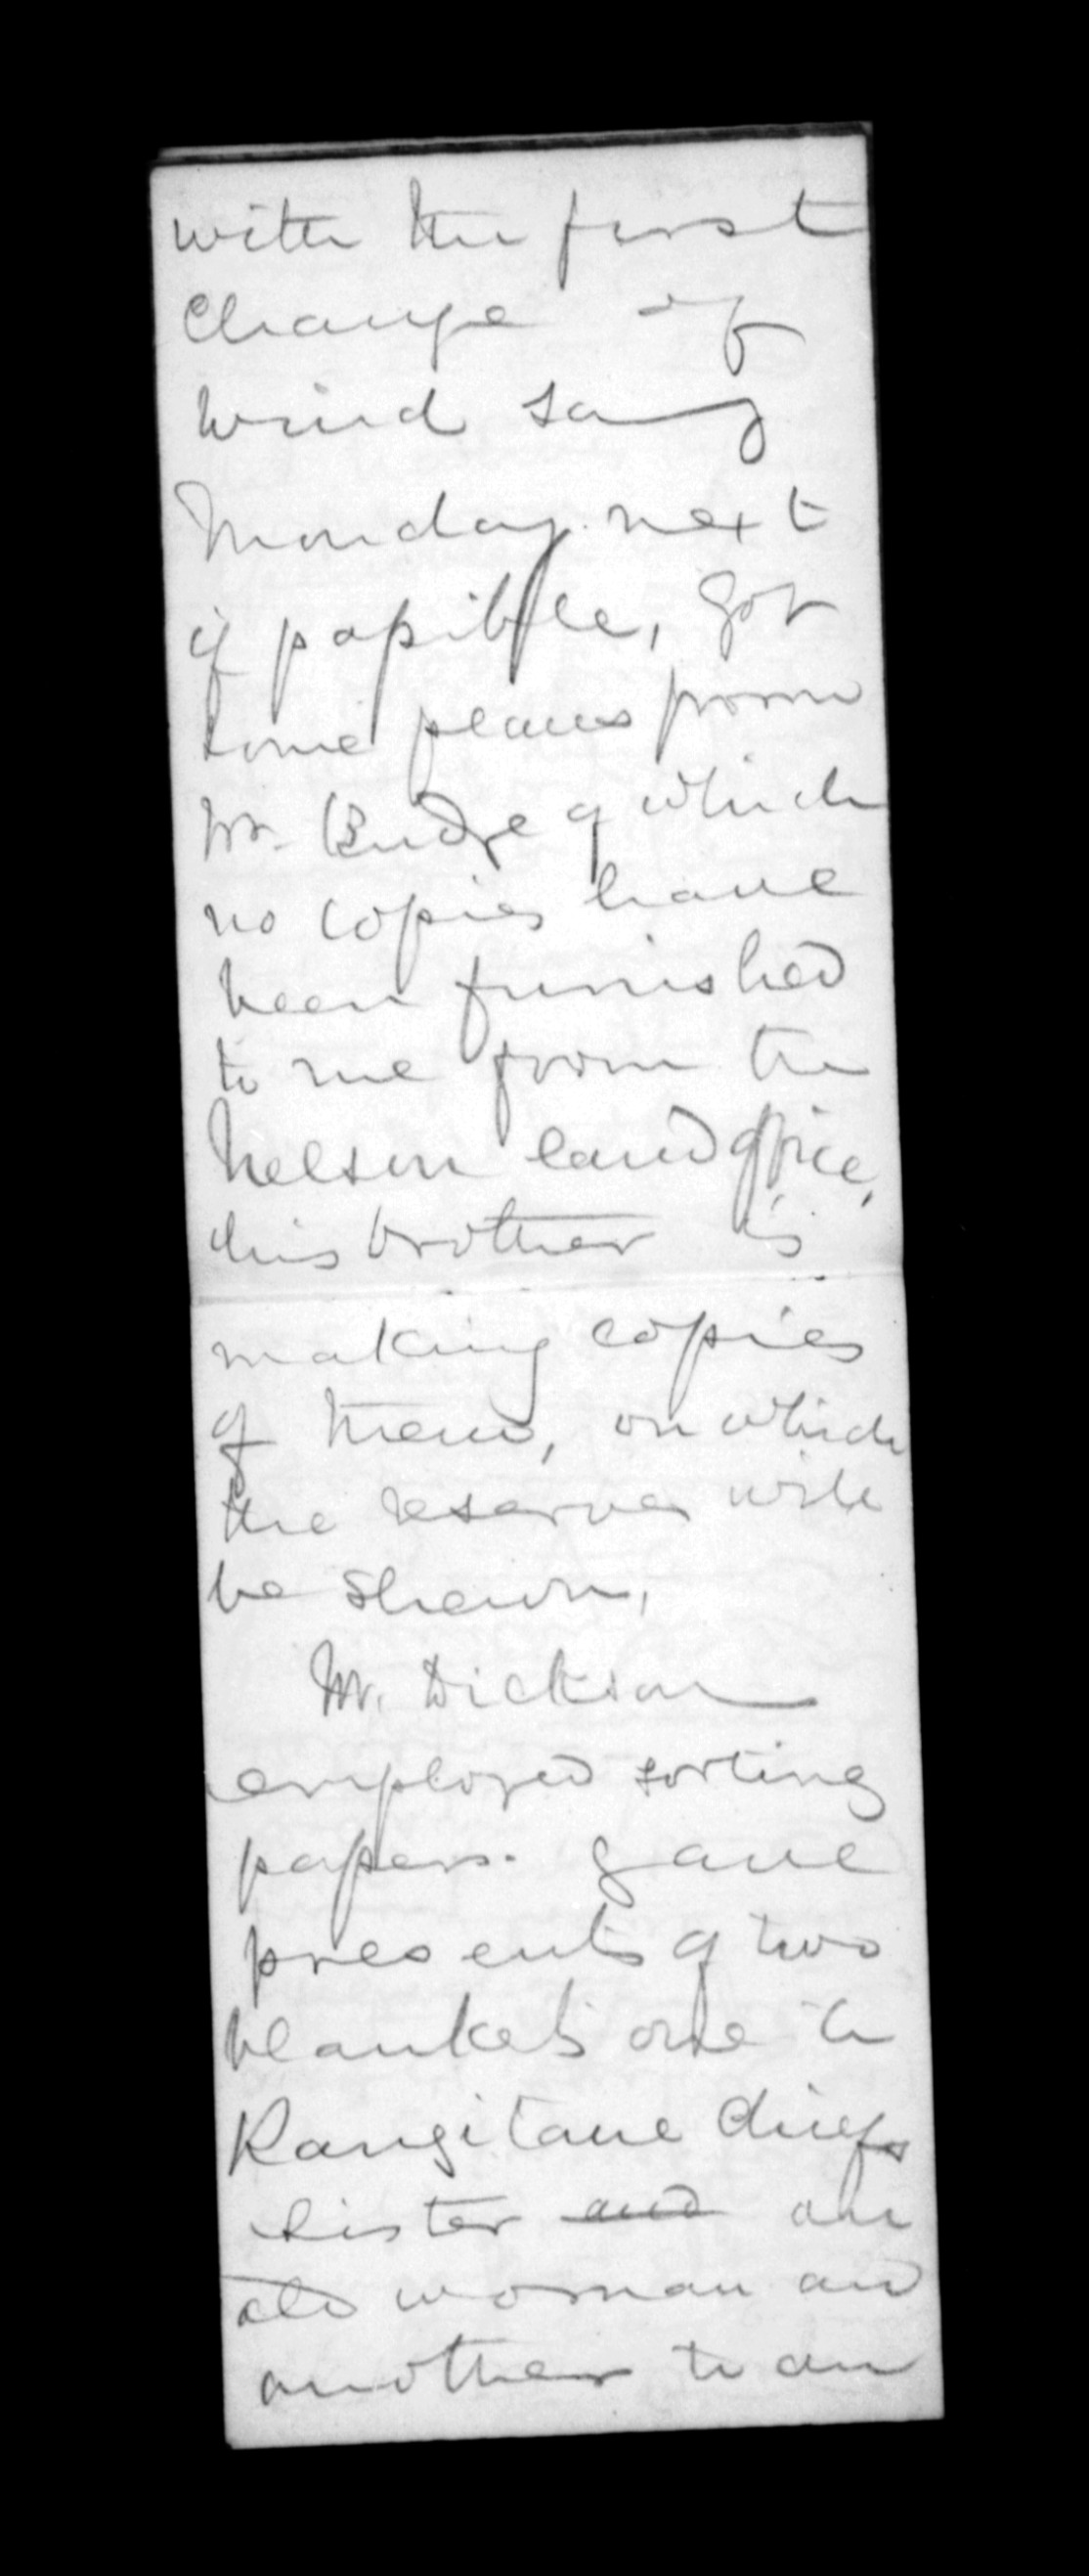 with the first
Change of
wind say
Monday next
if possible, Got
some plans from
Mr. Budge of which
no copies have
been furnished
to me from the
Nelson land office,
his brother is
making copies
of them, on which
the reserves will
be shewn,
Mr. Dickson
employed sorting
papers. gave
presents of two
blankets one to
Rangitane chiefs
sister and an
old woman and
another to an